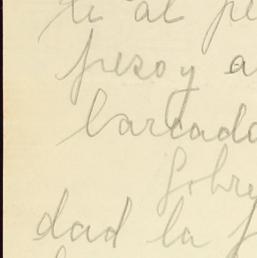 te al pe
peso y a
barcado
Sobre
dad la f